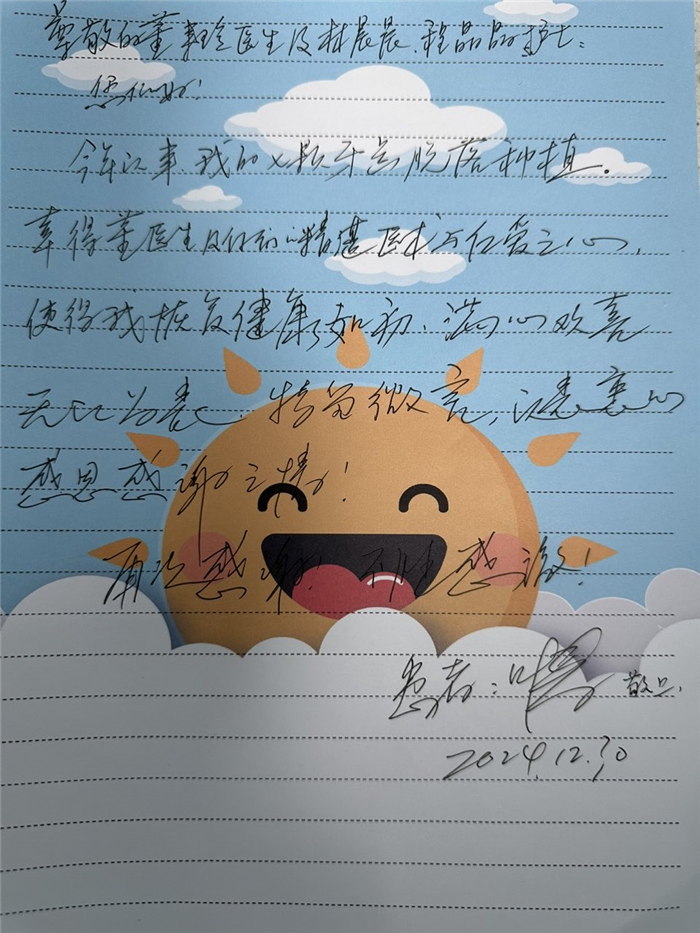 尊敬的董医生及林晨晨、程晶晶护士：
您们好！
今年以来，我的七颗牙齿脱落种植。
幸得董医生及你们的精湛医术与仁爱之心，
使得我恢复健康如初、满心欢喜
无以为表，特留微言，以表衷心
感恩感谢之情！
再次感谢！感激！
患者：叶敬上
2024.12.30